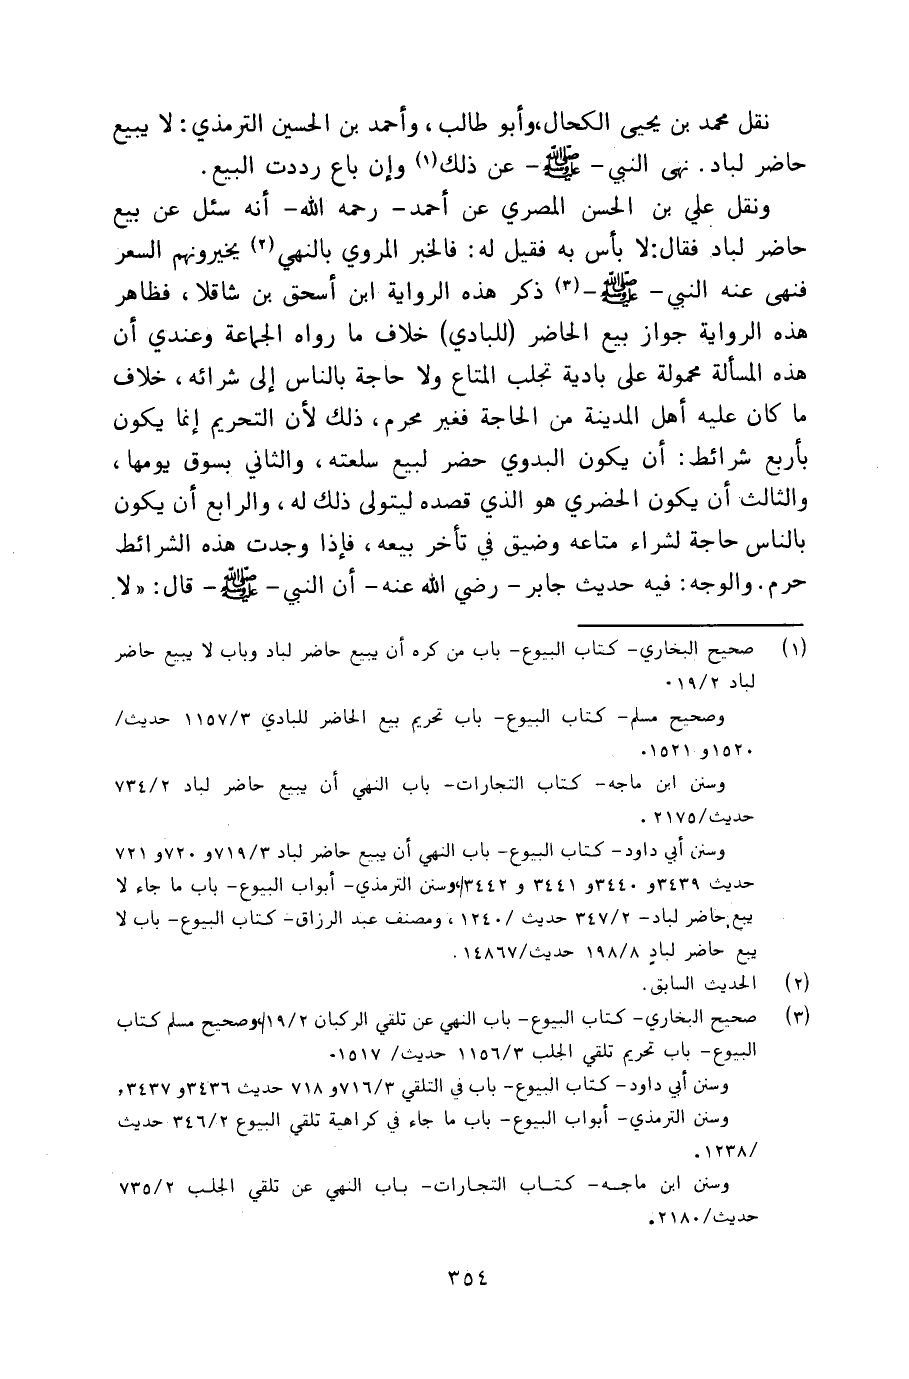 نقل محمد بن يحيى الكحال،وأبو طالب، وأحمد بن الحسين الترمذي: لا يبيع
حاضر لباد. نهى النبي- ﷺ- عن ذلك(١) وإن باع رددت البيع.
ونقل علي بن الحسن المصري عن أحمد- رحمه الله- أنه سئل عن بيع
حاضر لباد فقال:لا بأس به فقيل له: فالخبر المروي بالنهي(٢) يخبرونهم السعر
فنهى عنه النبي- ﷺ-(٣) ذكر هذه الرواية ابن أسحق بن شاقلا، فظاهر
هذه الرواية جواز بيع الحاضر (للبادي) خلاف ما رواه الجماعة وعندي أن
هذه المسألة محمولة على بادية تجلب المتاع ولا حاجة بالناس إلى شرائه، خلاف
ما كان عليه أهل المدينة من الحاجة فغير محرم، ذلك لأن التحريم إنما يكون
بأربع شرائط: أن يكون البدوي حضر لبيع سلعته، والثاني بسوق يومها،
والثالث أن يكون الحضري هو الذي قصده ليتولى ذلك له، والرابع أن يكون
بالناس حاجة لشراء متاعه وضيق في تأخر بيعه، فإذا وجدت هذه الشرائط
حرم. والوجه: فيه حديث جابر- رضي الله عنه- أن النبي- ﷺ- قال: «لا
(١) صحيح البخاري- كتاب البيوع- باب من كره أن يبيع حاضر لباد وباب لا يبيع حاضر
لباد ١٩/٢.
وصحيح مسلم- كتاب البيوع- باب تحريم بيع الحاضر للبادي ١١٥٧/٣ حديث/
١٥٢٠و ١٥٢١.
وسنن ابن ماجه- كتاب التجارات- باب النهي أن يبيع حاضر لباد ٧٣٤/٢
حديث/٢١٧٥.
وسنن أبي داود- كتاب البيوع- باب النهي أن يبيع حاضر لباد ٧١٩/٣و ٧٢٠و ٧٢١
حديث ٣٤٣٩و ٣٤٤٠و ٣٤٤١ و ٣٤٤٢،وسنن الترمذي- أبواب البيوع- باب ما جاء لا
يبع حاضر لباد- ٣٤٧/٢ حديث /١٢٤٠، ومصنف عبد الرزاق- كتاب البيوع- باب لا
يبع حاضر لبادٍ ١٩٨/٨ حديث/١٤٨٦٧.
(٢) الحديث السابق.
(٣) صحيح البخاري- كتاب البيوع- باب النهي عن تلقي الركبان ١٩/٢،وصحيح مسلم كتاب
البيوع- باب تحريم تلقي الجلب ١١٥٦/٣ حديث/ ١٥١٧.
وسنن أبي داود- كتاب البيوع- باب في التلقي ٧١٦/٣و ٧١٨ حديث ٣٤٣٦و ٣٤٣٧،
وسنن الترمذي- أبواب البيوع- باب ما جاء في كراهية تلقي البيوع ٣٤٦/٢ حديث
/١٢٣٨.
وسنن ابن ماجـه- كتـاب التجـارات- بـاب النهي عن تلقي الجلـب ٧٣٥/٢
حديث/٢١٨٠.
٣٥٤